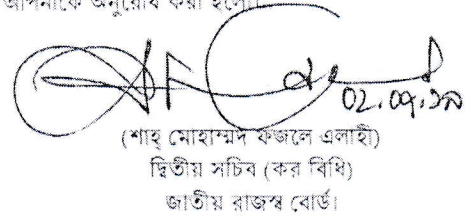 আপনাকে অনুরোধ করা হলো।
০২.০৭.১৯
(শাহ্ মোহাম্মদ ফজলে এলাহী)
দ্বিতীয় সচিব (কর বিধি)
জাতীয় রাজস্ব বোর্ড।